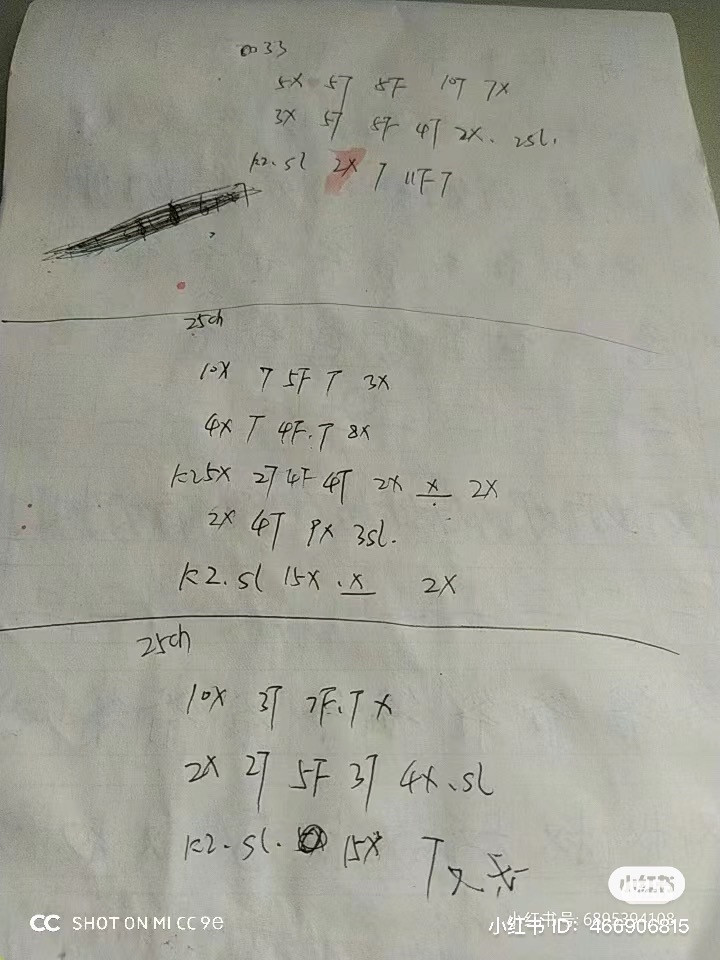 33
5X 5T 8F 10T 7X
3X 5T 5F 4T 2X. 2sl.
k2.sl 2X T 11F T
25ch
10X T 5F T 3X
4X T 4F.T 8X
k25X 2T 4F 4T 2X X 2X
2X 4T 9X 3sl.
k2.sl 15X.X 2X
25ch
10X 3T 7F.T X
2X 2T 5F 3T 4X.sl
k2.sl. 15X T
小红书
CC SHOT ON MI CC 9e
小红书号: 6895394108
小红书 ID: 466906815